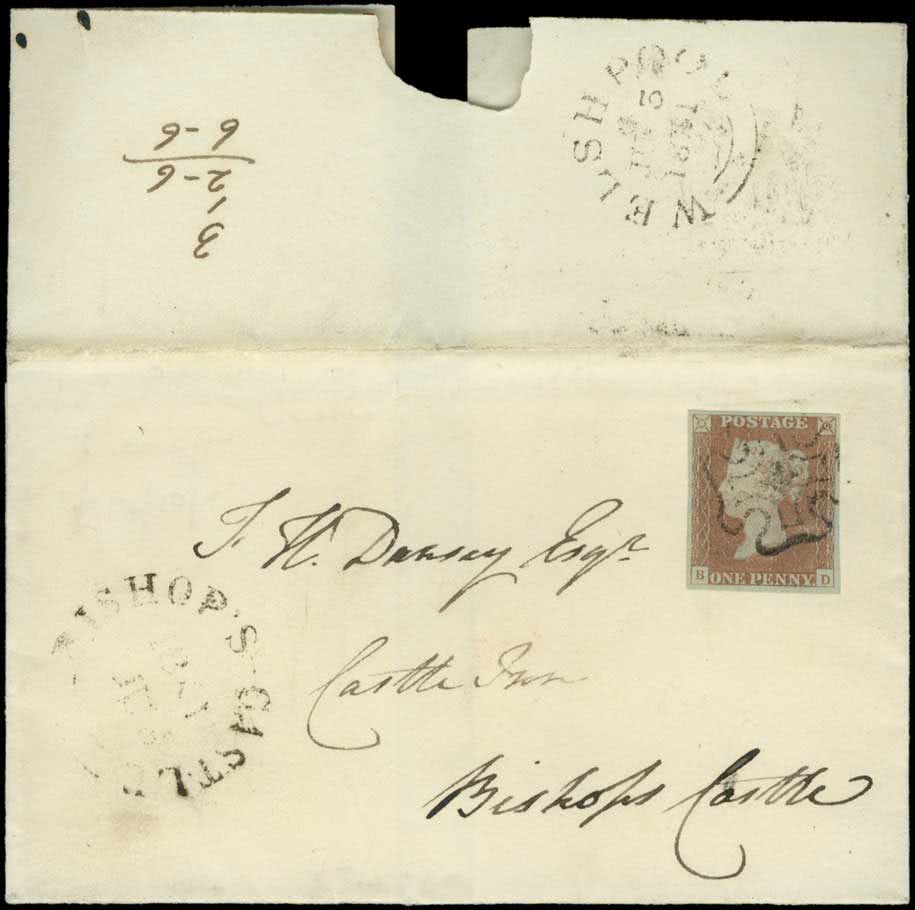 6-6
2-6
3,
WELSHPOOL
1841
POSTAGE
B D
ONE PENNY
F. H. Dansey Esqr
Castle Inn
Bishops Castle
BISHOP'S CASTLE